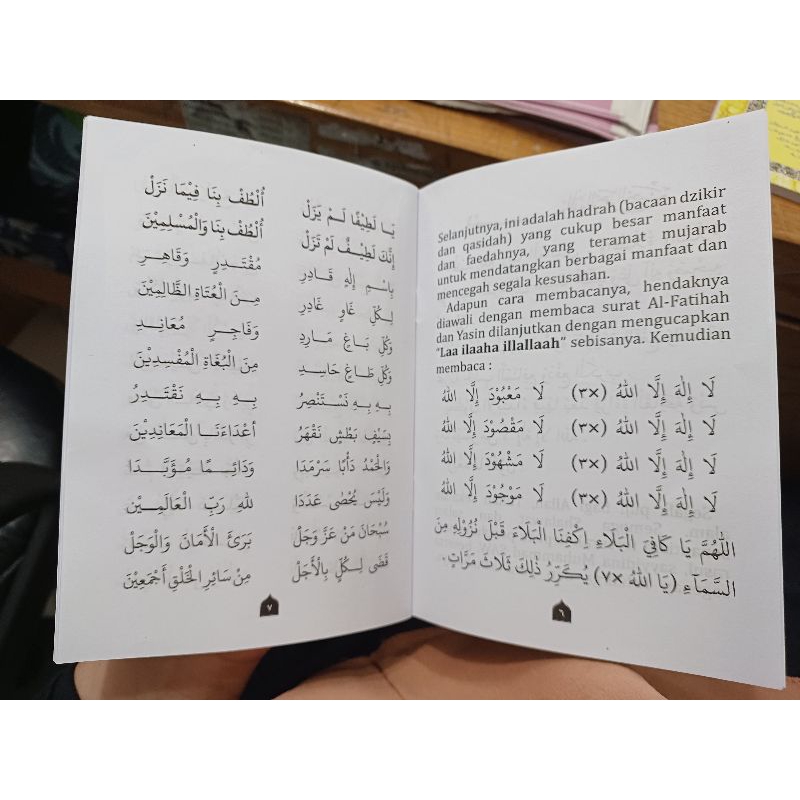 Selanjutnya, ini adalah hadrah (bacaan dzikir
dan qasidah) yang cukup besar manfaat
dan faedahnya, yang teramat mujarab
untuk mendatangkan berbagai manfaat dan
mencegah segala kesusahan.
Adapun cara membacanya, hendaknya
diawali dengan membaca surat Al-Fatihah
dan Yasin dilanjutkan dengan mengucapkan
"Laa ilaaha illallaah" sebisanya. Kemudian
membaca :
لَا إِلٰهَ إِلَّا اللهُ (×٣) لَا مَعْبُوْدَ إِلَّا اللهُ
لَا إِلٰهَ إِلَّا اللهُ (×٣) لَا مَقْصُوْدَ إِلَّا اللهُ
لَا إِلٰهَ إِلَّا اللهُ (×٣) لَا مَشْهُوْدَ إِلَّا اللهُ
لَا إِلٰهَ إِلَّا اللهُ (×٣) لَا مَوْجُوْدَ إِلَّا اللهُ
اَللّٰهُمَّ يَا كَافِيَ الْبَلَاءِ اِكْفِنَا الْبَلَاءَ قَبْلَ نُزُوْلِهِ مِنَ
السَّمَآءِ (يَا اللهُ ×٧) يُكَرِّرُ ذٰلِكَ ثَلَاثَ مَرَّاتٍ.
٦
يَا لَطِيْفًا لَمْ يَزَلْ اُلْطُفْ بِنَا فِيْمَا نَزَلْ
إِنَّكَ لَطِيْفٌ لَمْ تَزَلْ اُلْطُفْ بِنَا وَالْمُسْلِمِيْنَ
بِاسْمِ إِلٰهٍ قَادِرٍ مُقْتَدِرٍ وَقَاهِرٍ
لِكُلِّ غَاوٍ غَادِرٍ مِنَ الْعُتَاةِ الظَّالِمِيْنَ
وَكُلِّ بَاغٍ مَارِدٍ وَفَاجِرٍ مُعَانِدٍ
وَكُلِّ طَاغٍ حَاسِدٍ مِنَ الْبُغَاةِ الْمُفْسِدِيْنَ
بِهِ بِهِ نَسْتَنْصِرُ بِهِ بِهِ نَقْتَدِرُ
بِسَيْفِ بَطْشٍ نَقْهَرُ أَعْدَاءَنَا الْمَعَانِدِيْنَ
وَالْحَمْدُ دَأْبًا سَرْمَدَا وَدَائِمًا مُؤَبَّدَا
وَلَيْسَ يُحْصٰى عَدَدَا لِلّٰهِ رَبِّ الْعَالَمِيْنَ
سُبْحَانَ مَنْ عَزَّ وَجَلْ بَرَئَ الْأَمَانَ وَالْوَجَلْ
قَضٰى لِكُلٍّ بِالْأَجَلْ مِنْ سَائِرِ الْخَلْقِ أَجْمَعِيْنَ
٧